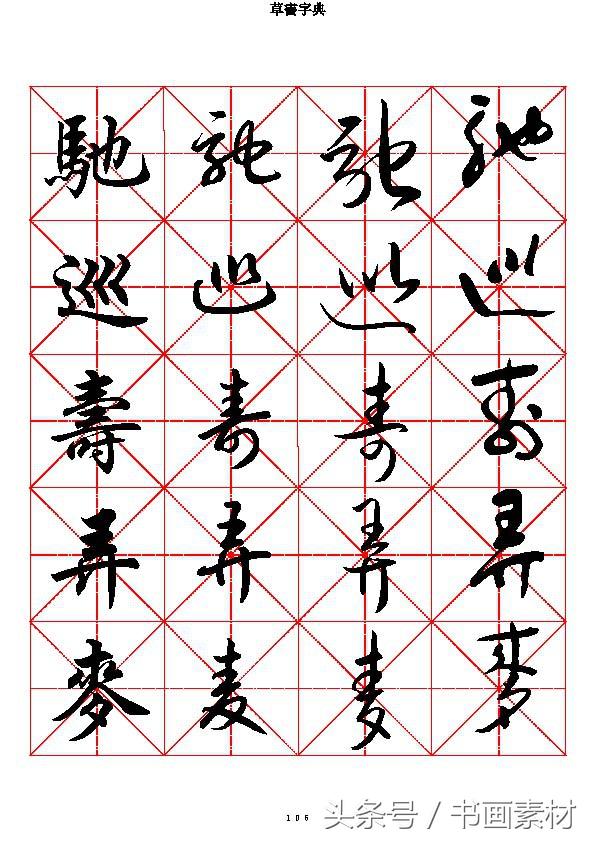 草書字典
馳 馳 馳 馳
巡 巡 巡 巡
壽 寿 寿 寿
弄 弄 弄 弄
麥 麦 麦 麥
106
头条号 / 书画素材